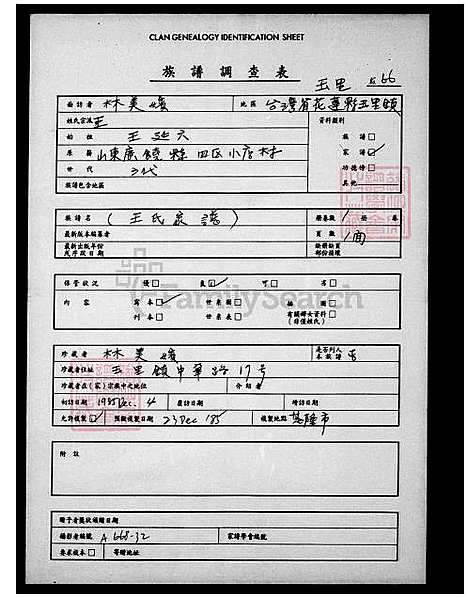 CLAN GENEALOGY IDENTIFICATION SHEET
族譜調查表
玉里 66
面訪者 林美嬌 地區 台灣省花蓮縣玉里鎮
姓氏宗派 王 資料類別
始祖 王延六 族譜□
原籍 山東廣饒縣四區小店村 家譜☑
世代 3代 功德榜□
族譜包含地區 其他
族譜名 (王氏家譜) 冊卷數 1 冊 卷
最新版本編纂者 頁數 1面
最新出版年份 缺冊缺頁
或序跋日期 部份描棟
保管狀況 優□ 良☑ 可□ 劣□
內容 寫本☑ 世系圖□ 插圖□
列本□ 世系表□ 有關婦女資料□
(非僅姓氏)
珍藏者 林美嬌 是否列入
本族譜 否
珍藏者住址 玉里鎮中華路17号
珍藏者在(家)宗族中之地位 介紹者
初訪日期 1985 Dec. 4 復訪日期 增訪日期
允許複製☑ 預擬複製日期 23 Dec '85 複製地點 基隆市
附註
贈予者獎狀頒贈日期
攝影者編號 A 668-32 家譜學會編號
要求複本□ 寄贈地址
FamilySearch